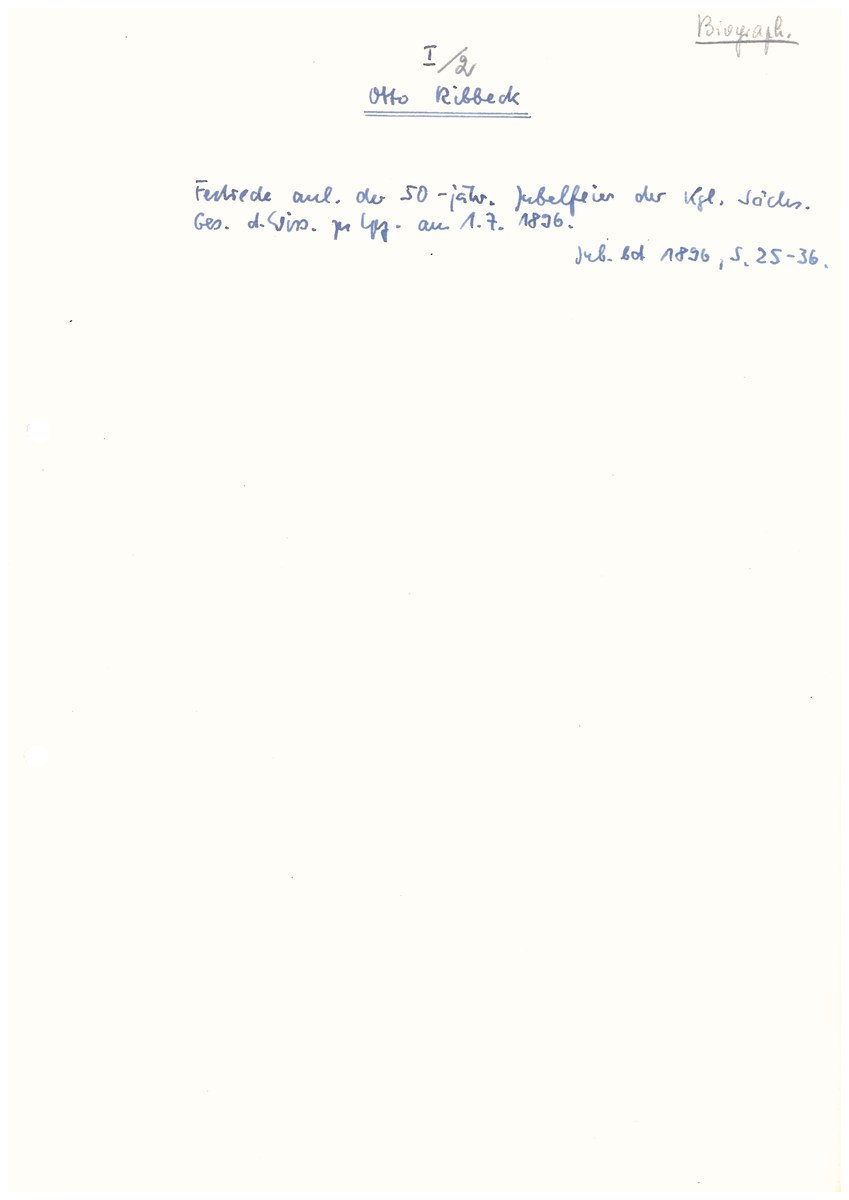 Biograph.
I/2
Otto Ribbeck
Festrede anl. der 50-jähr. Jubelfeier der Kgl. Sächs.
Ges. d. Wiss. zu Lpzg. am 1.7. 1896.
Jub. bd 1896, S. 25-36.